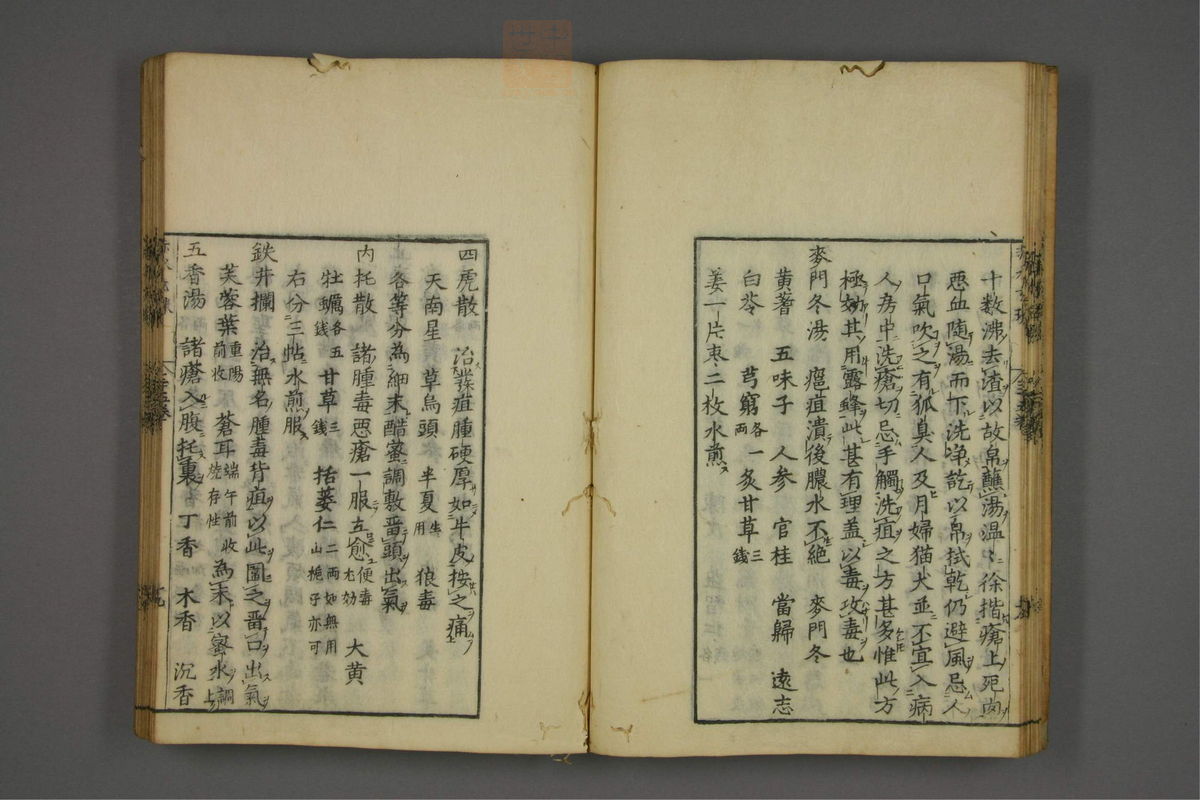 十数沸去渣以故帛蘸湯温々徐揩瘡上死肉
悪血随湯而下洗净訖以帛拭乾仍避風忌人
口氣吹之有狐臭人及月婦猫犬並不宜入病
人房中洗瘡切忌手觸洗疽之方甚多惟此方
極妙其用露蜂此甚有理盖以毒攻毒也
麥門冬湯 癰疽潰後膿水不絶 麥門冬
黄蓍 五味子 人参 官桂 當歸 遠志
白苓 芎窮各一两 炙甘草三錢
姜一片枣二枚水煎
四虎散 治癰疽腫硬厚如牛皮按之痛
天南星 草烏頭 半夏生用 狼毒
各等分為細末醋蜜調敷畱頭出氣
内托散 諸腫毒悪瘡一服立愈便毒尤効 大黄
牡蠣各五錢 甘草三錢 括蒌仁二两如無用山梔子亦可
右分三帖水煎服
鉄井欄 治無名腫毒背疽以此圍之畱口出氣
芙蓉葉重陽前收 蒼耳端午前收燒存性 為末以蜜水調上
五香湯 諸瘡入腹托裏 丁香 木香 沉香